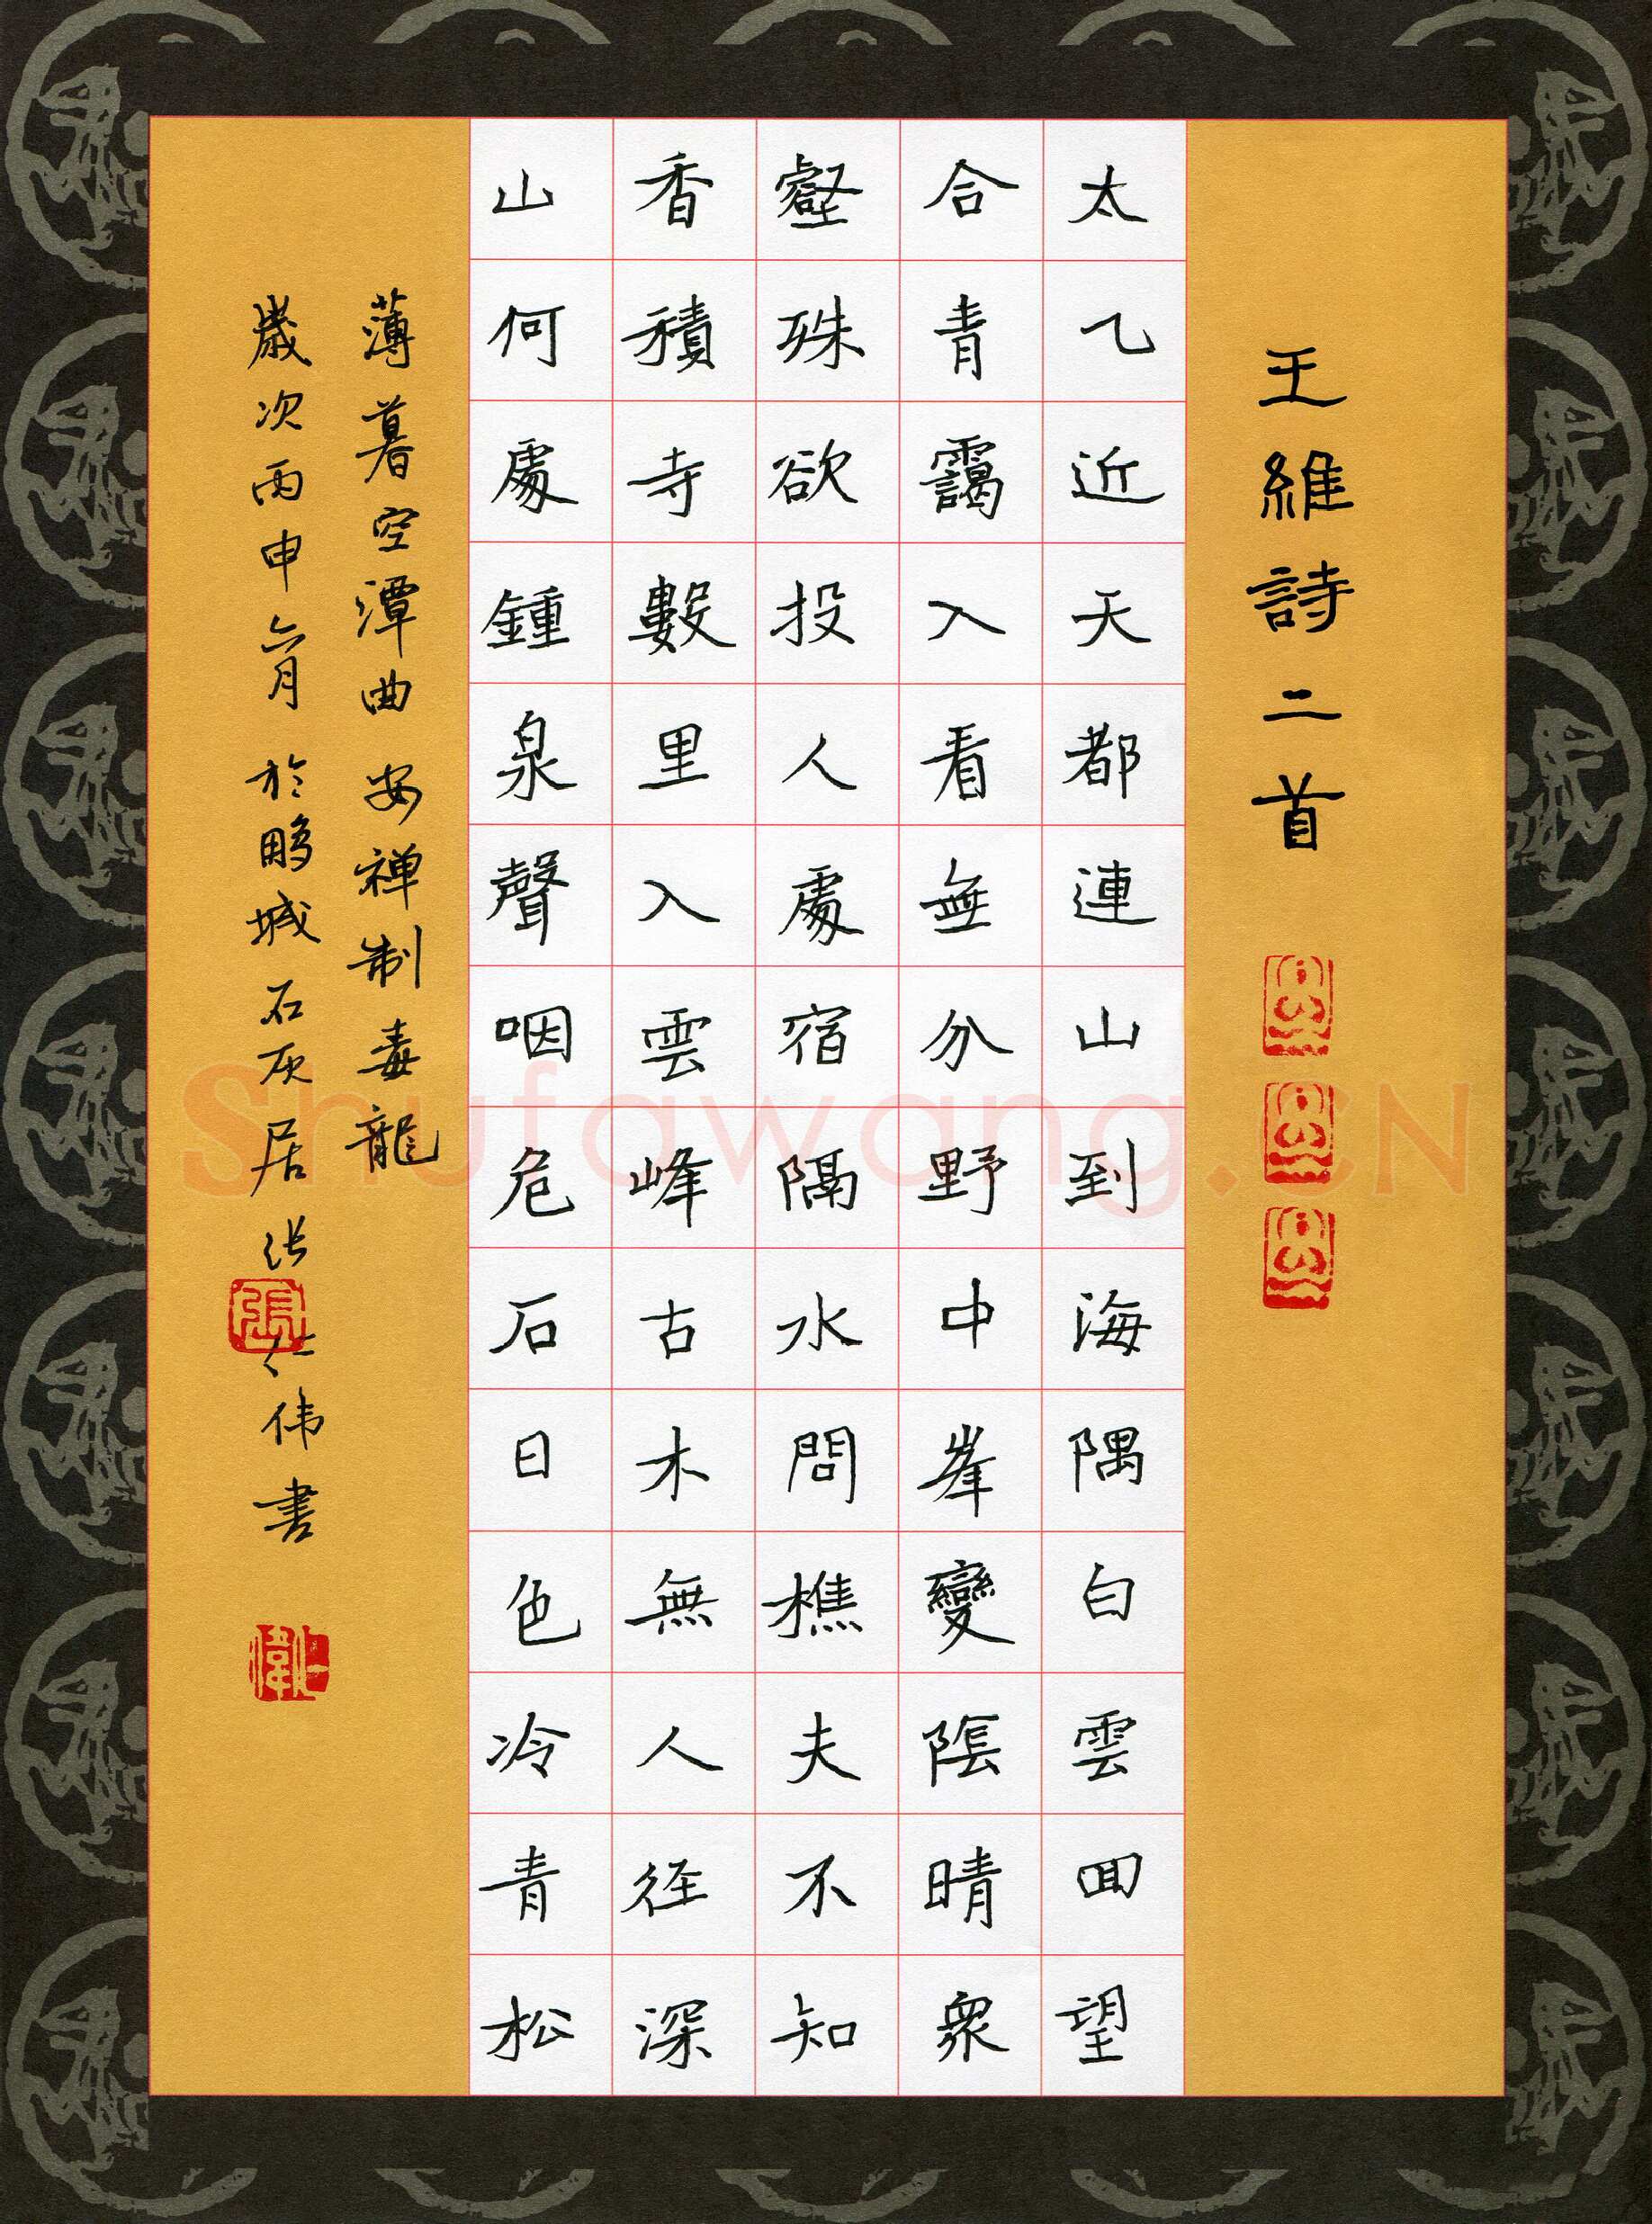 王維詩二首
太乙近天都連山到海隅白雲囬望
合青靄入看無分野中峯變陰晴衆
壑殊欲投人處宿隔水問樵夫不知
香積寺數里入雲峰古木無人徑深
山何處鍾泉聲咽危石日色冷青松
薄暮空潭曲安禅制毒龍
歲次丙申六月於鹏城石灰居张仁伟書
張
仁偉
Shufawang.CN